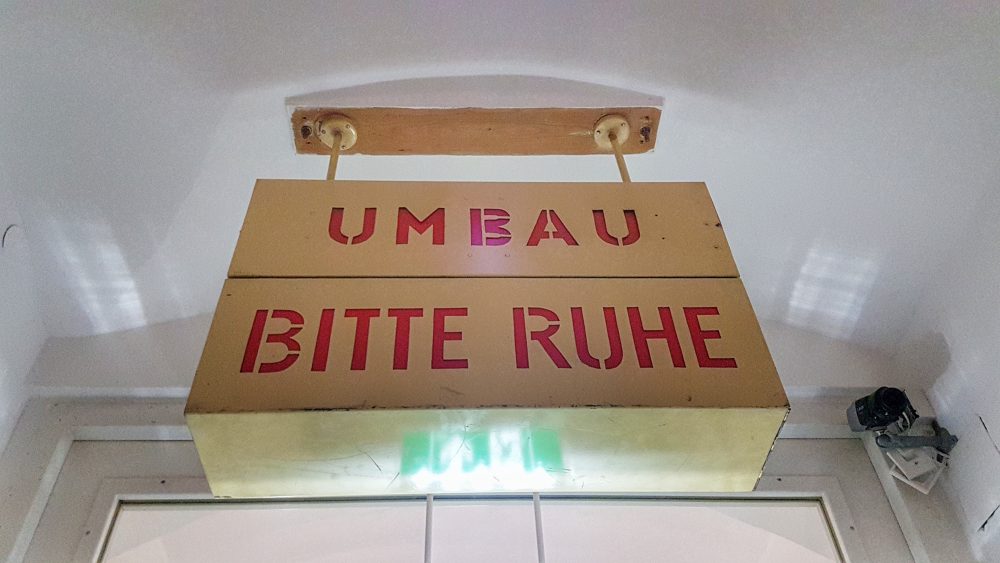 UMBAU
BITTE RUHE